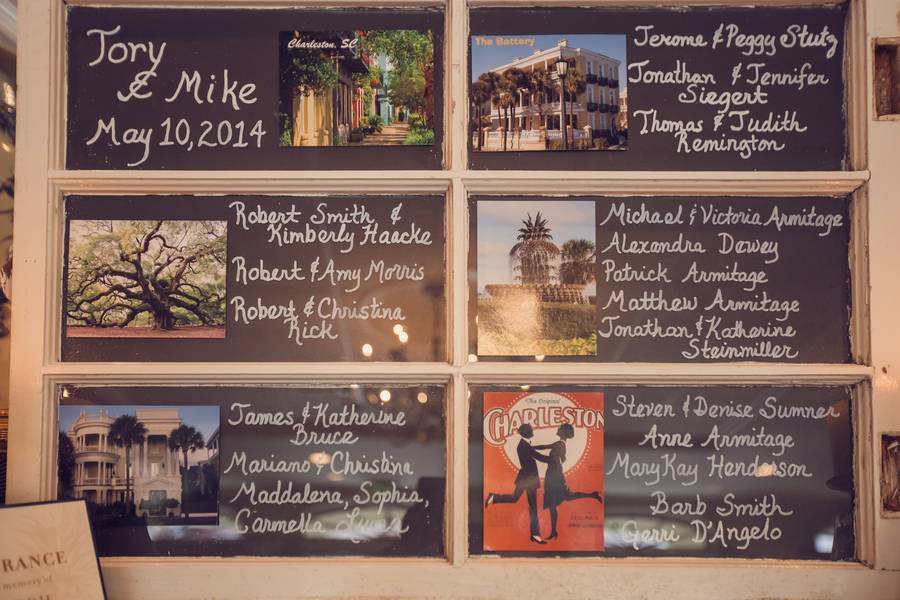 Tory
& Mike
May 10, 2014
Charleston, SC
The Battery
Jerome & Peggy Stutz
Jonathan & Jennifer
Siegert
Thomas & Judith
Remington
Robert Smith &
Kimberly Haacke
Robert & Amy Morris
Robert & Christina
Rick
Michael & Victoria Armitage
Alexandra Dewey
Patrick Armitage
Matthew Armitage
Jonathan & Katherine
Steinmiller
James & Katherine
Bruce
Mariano & Christina
Maddalena, Sophia,
Carmella
The Original
CHARLESTON
Steven & Denise Sumner
Anne Armitage
MaryKay Henderson
Barb Smith
Gerri D'Angelo
RANCE
memory of